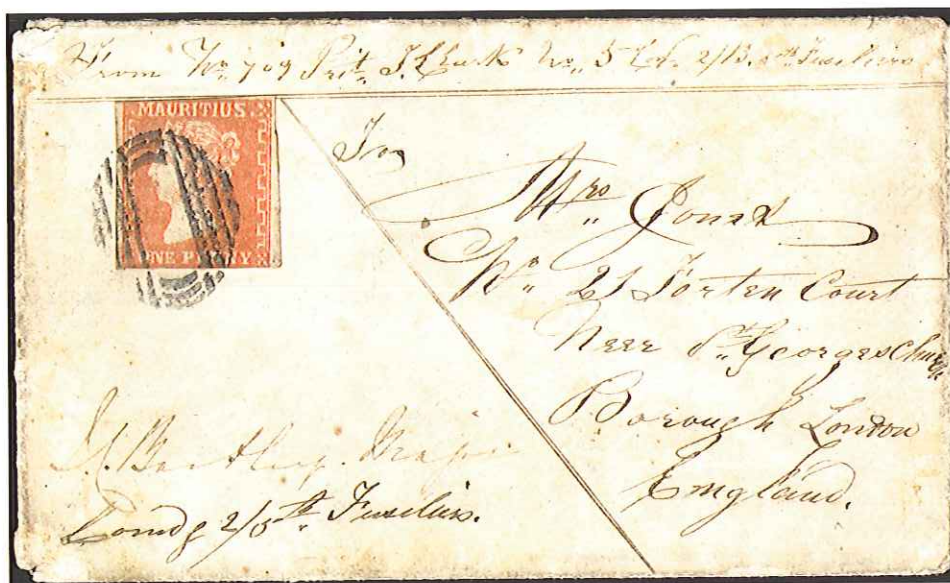 From No 709 Prit J. Clark No 5 Co 2/B. 5th Fusiliers
MAURITIUS
ONE PENNY
To
Mrs Jones
No 21 Forten Court
Neer St Georges Church
Borough London
England.
Bartley. Major
Comdg 2/5th Fusiliers.